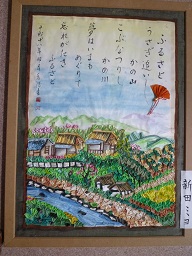 ふるさと
うさぎ追いし
かの山
こぶなつりし
かの川
夢はいまも
めぐりて
忘れがたき
ふるさと
新田ミヨ